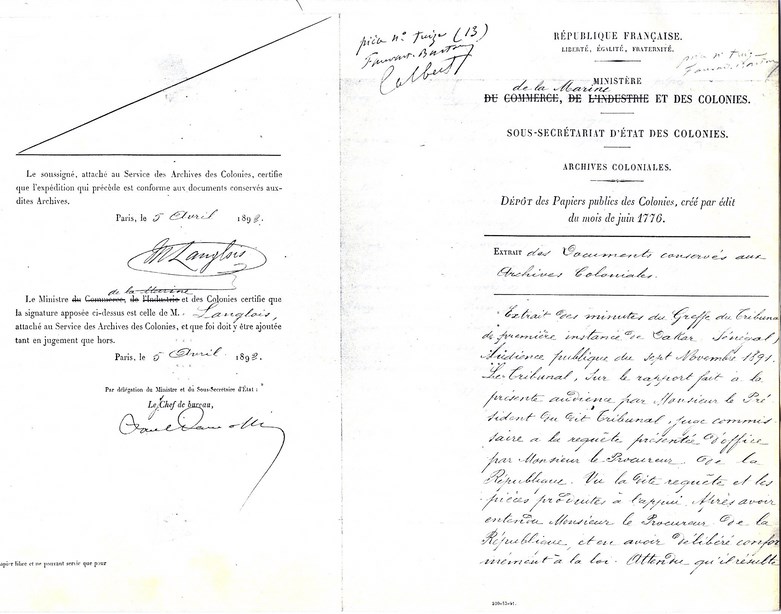 Le soussigné, attaché au Service des Archives des Colonies, certifie
que l'expédition qui précède est conforme aux documents conservés aux-
dites Archives.
Paris, le 5 Avril 1892.
M Langlois
de la Marine
Le Ministre du Commerce, de l'Industrie et des Colonies certifie que
la signature apposée ci-dessus est celle de M. Langlois,
attaché au Service des Archives des Colonies, et que foi doit y être ajoutée
tant en jugement que hors.
Paris, le 5 Avril 1892.
Par délégation du Ministre et du Sous-Secrétaire d'État :
Le Chef de bureau,
apier libre et ne pouvant servir que pour
pièce n° treize (13)
RÉPUBLIQUE FRANÇAISE.
LIBERTÉ, ÉGALITÉ, FRATERNITÉ.
MINISTÈRE
de la Marine
DU COMMERCE, DE L'INDUSTRIE ET DES COLONIES.
SOUS-SECRÉTARIAT D'ÉTAT DES COLONIES.
ARCHIVES COLONIALES.
DÉPÔT des Papiers publics des Colonies, créé par édit
du mois de juin 1776.
EXTRAIT des Documents conservés aux
Archives Coloniales.
Extrait des minutes du Greffe du Tribuna
de première instance de Dakar (Sénégal)
Audience publique du sept Novembre 1891.
Le Tribunal, Sur le rapport fait à la
présente audience par Monsieur le Pré
sident du dit Tribunal, juge commis
saire a la requête présentée d'office
par Monsieur le Procureur de la
République. Vu la dite requête et les
pièces produites à l'appui. Après avoir
entendu Monsieur le Procureur de la
République, et en avoir délibéré confor
mément à la loi. Attendu qu'il résulte